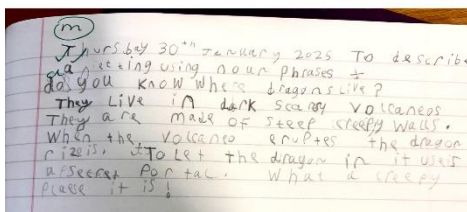 m
Thursday 30th January 2025 To describe
a setting using noun phrases
do you know where dragons live?
They Live in dark scary volcaneos
They are made of steep creepy walls.
When the volcaneo eruptes the dragon
rizeis. To Let the dragon in it uses
a secret Portal. What a creepy
place it is!